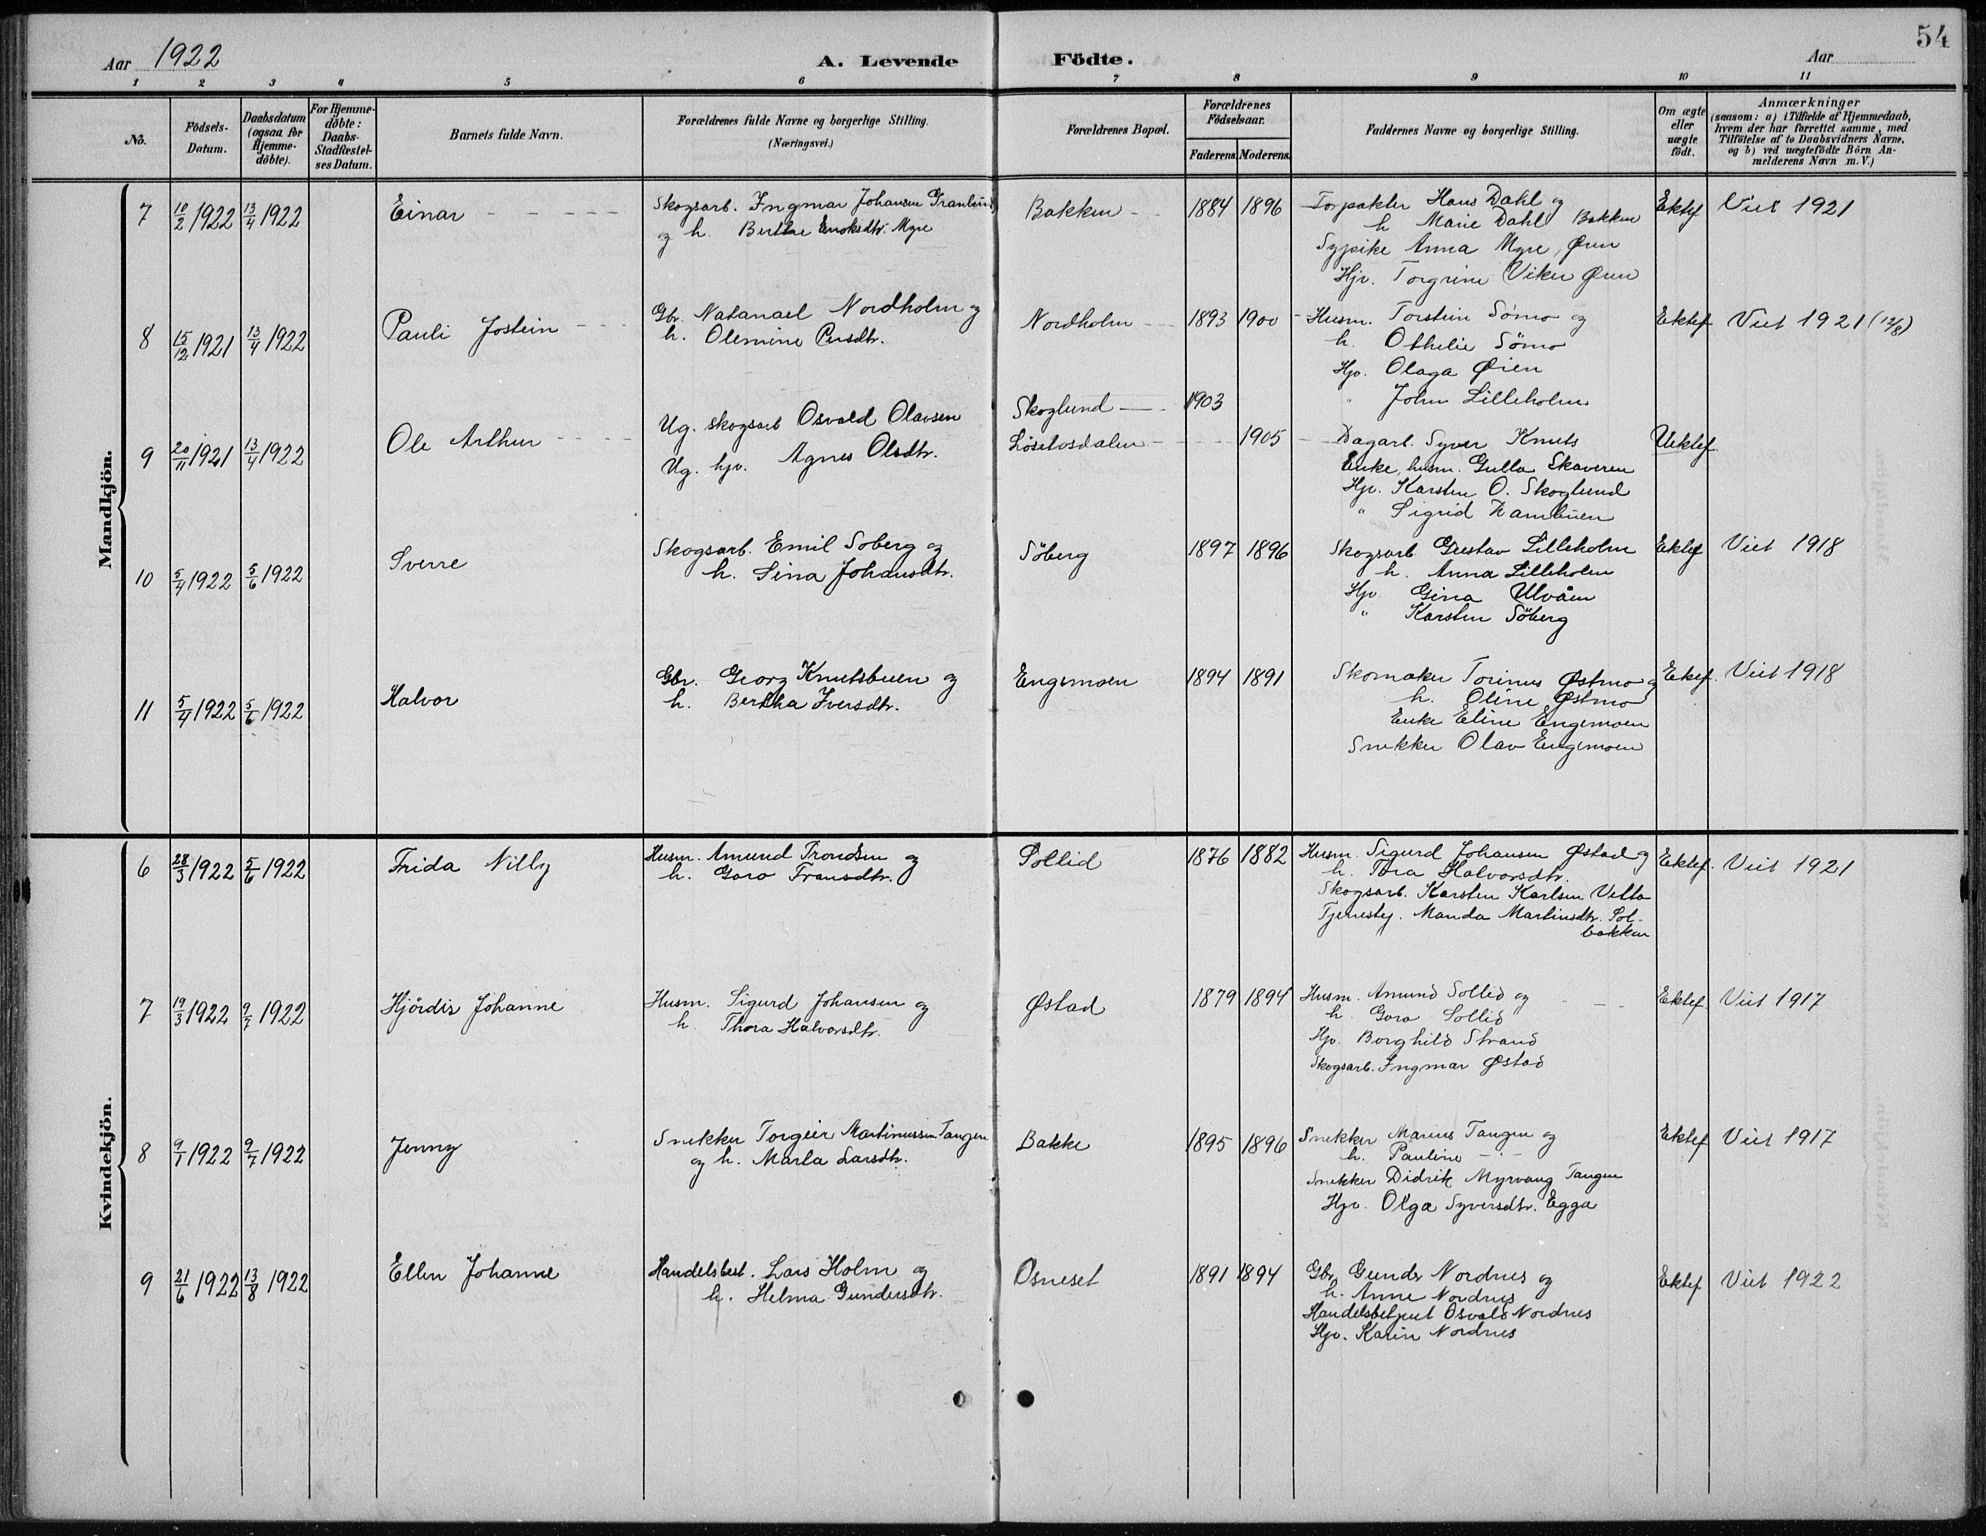 54
Aar 1922
A. Levende Födte.
Aar
1 2 3 4 5 6 7 8 9 10 11
No.
Födsels-Datum.
Daabsdatum (ogsaa for Hjemme-döbte).
For Hjemme-döbte: Daabs-Stadfæstel-ses Datum.
Barnets fulde Navn.
Forældrenes fulde Navne og borgerlige Stilling.
(Næringsvei.)
Forældrenes Bopæl.
Forældrenes Födselsaar.
Faderens. Moderens.
Faddernes Navne og borgerlige Stilling.
Om ægte eller uægte födt.
Anmærkninger
(saasom: a) i Tilfælde af Hjemmedaab,
hvem der har forrettet samme, med
Tilföielse af to Daabsvidners Navne,
og b) ved uægtefödte Börn An-
melderens Navn m. V.)
Mandkjön.
7 10/2 1922 13/4 1922 Einar Skogsarb. Ingmar Johansen Granlund Bakken 1884 1896 Hans Dahl og Ektef Viet 1921
og h. Berthe Enoksdtr. Myre
h Marie Dahl Bakken
Sypike Anna Myre, Øren
Hjv. Torgrine Viker Øren
8 15/12 1921 13/4 1922 Pauli Jostein Gbr. Natanael Nordholm og Nordholm 1893 1900 Husm. Torstein Sømo og Ektef Viet 1921 (12/8)
h. Olemine Persdtr.
h. Othelie Sömo
Hjv. Olaga Øien
" John Lilleholm
9 20/11 1921 13/4 1922 Ole Arthur Ug. skogsarb Osvald Olavsen Skoglund 1903
Ug. hjv. Agnes Olsdtr. 1905 Dagarb. Syver Knuts Uektef.
Enke, husm. Gulla Skaveren
Hjv. Karsten O. Skoglund
" Sigrid
10 5/4 1922 5/6 1922 Sverre Skogsarb. Emil Soberg og Söberg 1897 1896 Skogsarb Gustav Lilleholm Ektef Viet 1918
h. Sina Johansdtr.
h. Anna Lilleholm
Hjv. Gina Ulvåen
" Karsten Söberg
11 5/4 1922 5/6 1922 Halvor Gbr. Georg Knutsbuen og Engemoen 1894 1891 Skomaker Torinus Østmo og Ektef. Viet 1918
h. Bertha Iversdtr.
h. Oline Østmo
Enke Eline Engemoen
Snekker Olav Engemoen
Kvindekjön.
6 28/3 1922 5/6 1922 Frida Nilly Husm. Amund Trondsen og Sollid 1876 1882 Husm. Sigurd Johansen Østad og Ektef. Viet 1921
h. Goro Fransdtr.
h. Tora Halvorsdtr.
Skogsarb. Karsten Karlsen Vetta
Tjenestej. Manda Martinsdtr. Sol-
bakken
7 19/3 1922 9/7 1922 Hjördis Johanne Husm. Sigurd Johansen og Østad 1879 1894 Husm. Amund Sollid og Ektef. Viet 1917
h. Thora Halvorsdtr.
h. Goro Sollid
Hjv. Borghild Strand
Skogsarb. Ingmar Østad
8 9/1 1922 9/7 1922 Jenny Snekker Torgeir Martinussen Tangen Bakke 1895 1896 Snekker Marius Tangen og Ektef Viet 1917
og h. Marla Larsdtr.
h. Pauline —"—
Snekker Didrik Myrvang Tangen
Hjv. Olga Syversdtr. Egga
9 21/6 1922 13/8 1922 Ellen Johanne Handelsbest. Lars Holm og Osneset 1891 1894 Gbr. Gunder Nordnes og Ektef Viet 1922
h. Helma Gundersdtr.
h. Anne Nordnes
Handelsbetjent Osvald Nordnes
Hjv. Karin Nordnes